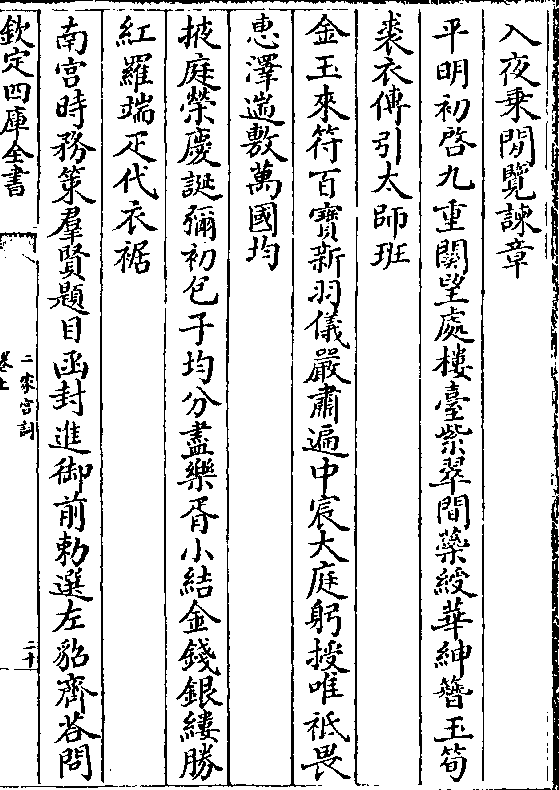 入夜乗閒覽諫章
平明初啓九重關望處樓臺紫翠間蘂綬華紳簪玉筍
裘衣傳引太師班
金玉來符百寶新羽儀嚴肅遍中宸大庭躬授唯祗畏
恵澤遄敷萬國均
掖庭榮慶誕彌初包子均分盡樂胥小結金錢銀縷勝
紅羅端疋代衣裾
南宫時務策羣賢題目函封進御前勅選左貂齊荅問
欽定四庫全書
二家宫詞
卷上
二十